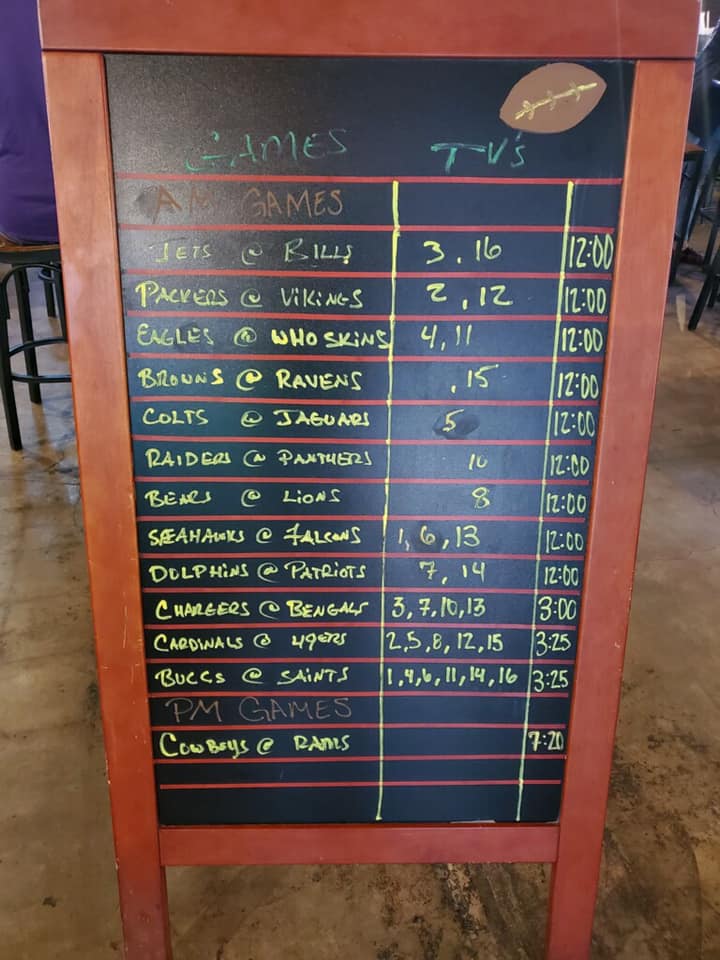 GAMES TV's
AM GAMES
JETS @ BILLS 3, 16 12:00
PACKERS @ VIKINGS 2, 12 12:00
EAGLES @ WHO SKINS 4, 11 12:00
BROWNS @ RAVENS , 15 12:00
COLTS @ JAGUARS 5 12:00
RAIDERS @ PANTHERS 10 12:00
BEARS @ LIONS 8 12:00
SEAHAWKS @ FALCONS 1, 6, 13 12:00
DOLPHINS @ PATRIOTS 7, 14 12:00
CHARGERS @ BENGALS 3, 7, 10, 13 3:00
CARDINALS @ 49ERS 2, 5, 8, 12, 15 3:25
BUCCS @ SAINTS 1, 4, 6, 11, 14, 16 3:25
PM GAMES
COWBOYS @ RAMS 7:20